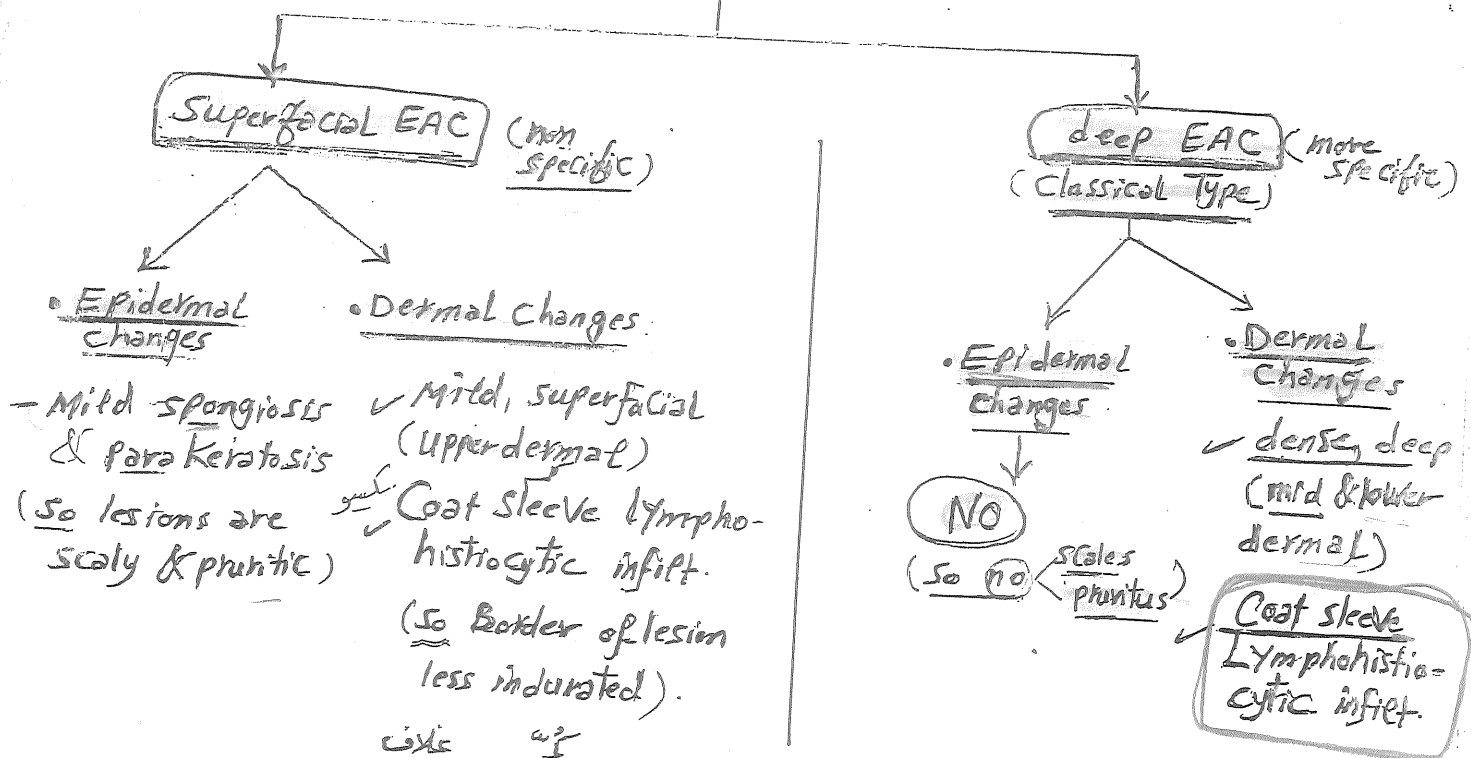 Superfacial EAC
(non
specific)
• Epidermal
changes
- Mild spongiosis
& parakeratosis
(so lesions are
scaly & pruritic)
• Dermal Changes.
✓ Mild, superfacial
(upper dermal)
✓ Coat sleeve lympho-
histiocytic infilt.
(so Border of lesion
less indurated).
غلاف
deep EAC
(more
specific)
(Classical Type)
• Epidermal
changes.
NO
(so no
scales
pruritus)
• Dermal
Changes
✓ dense, deep
(mid & lower
dermal)
✓ Coat sleeve
Lymphohistio-
cytic infilt.